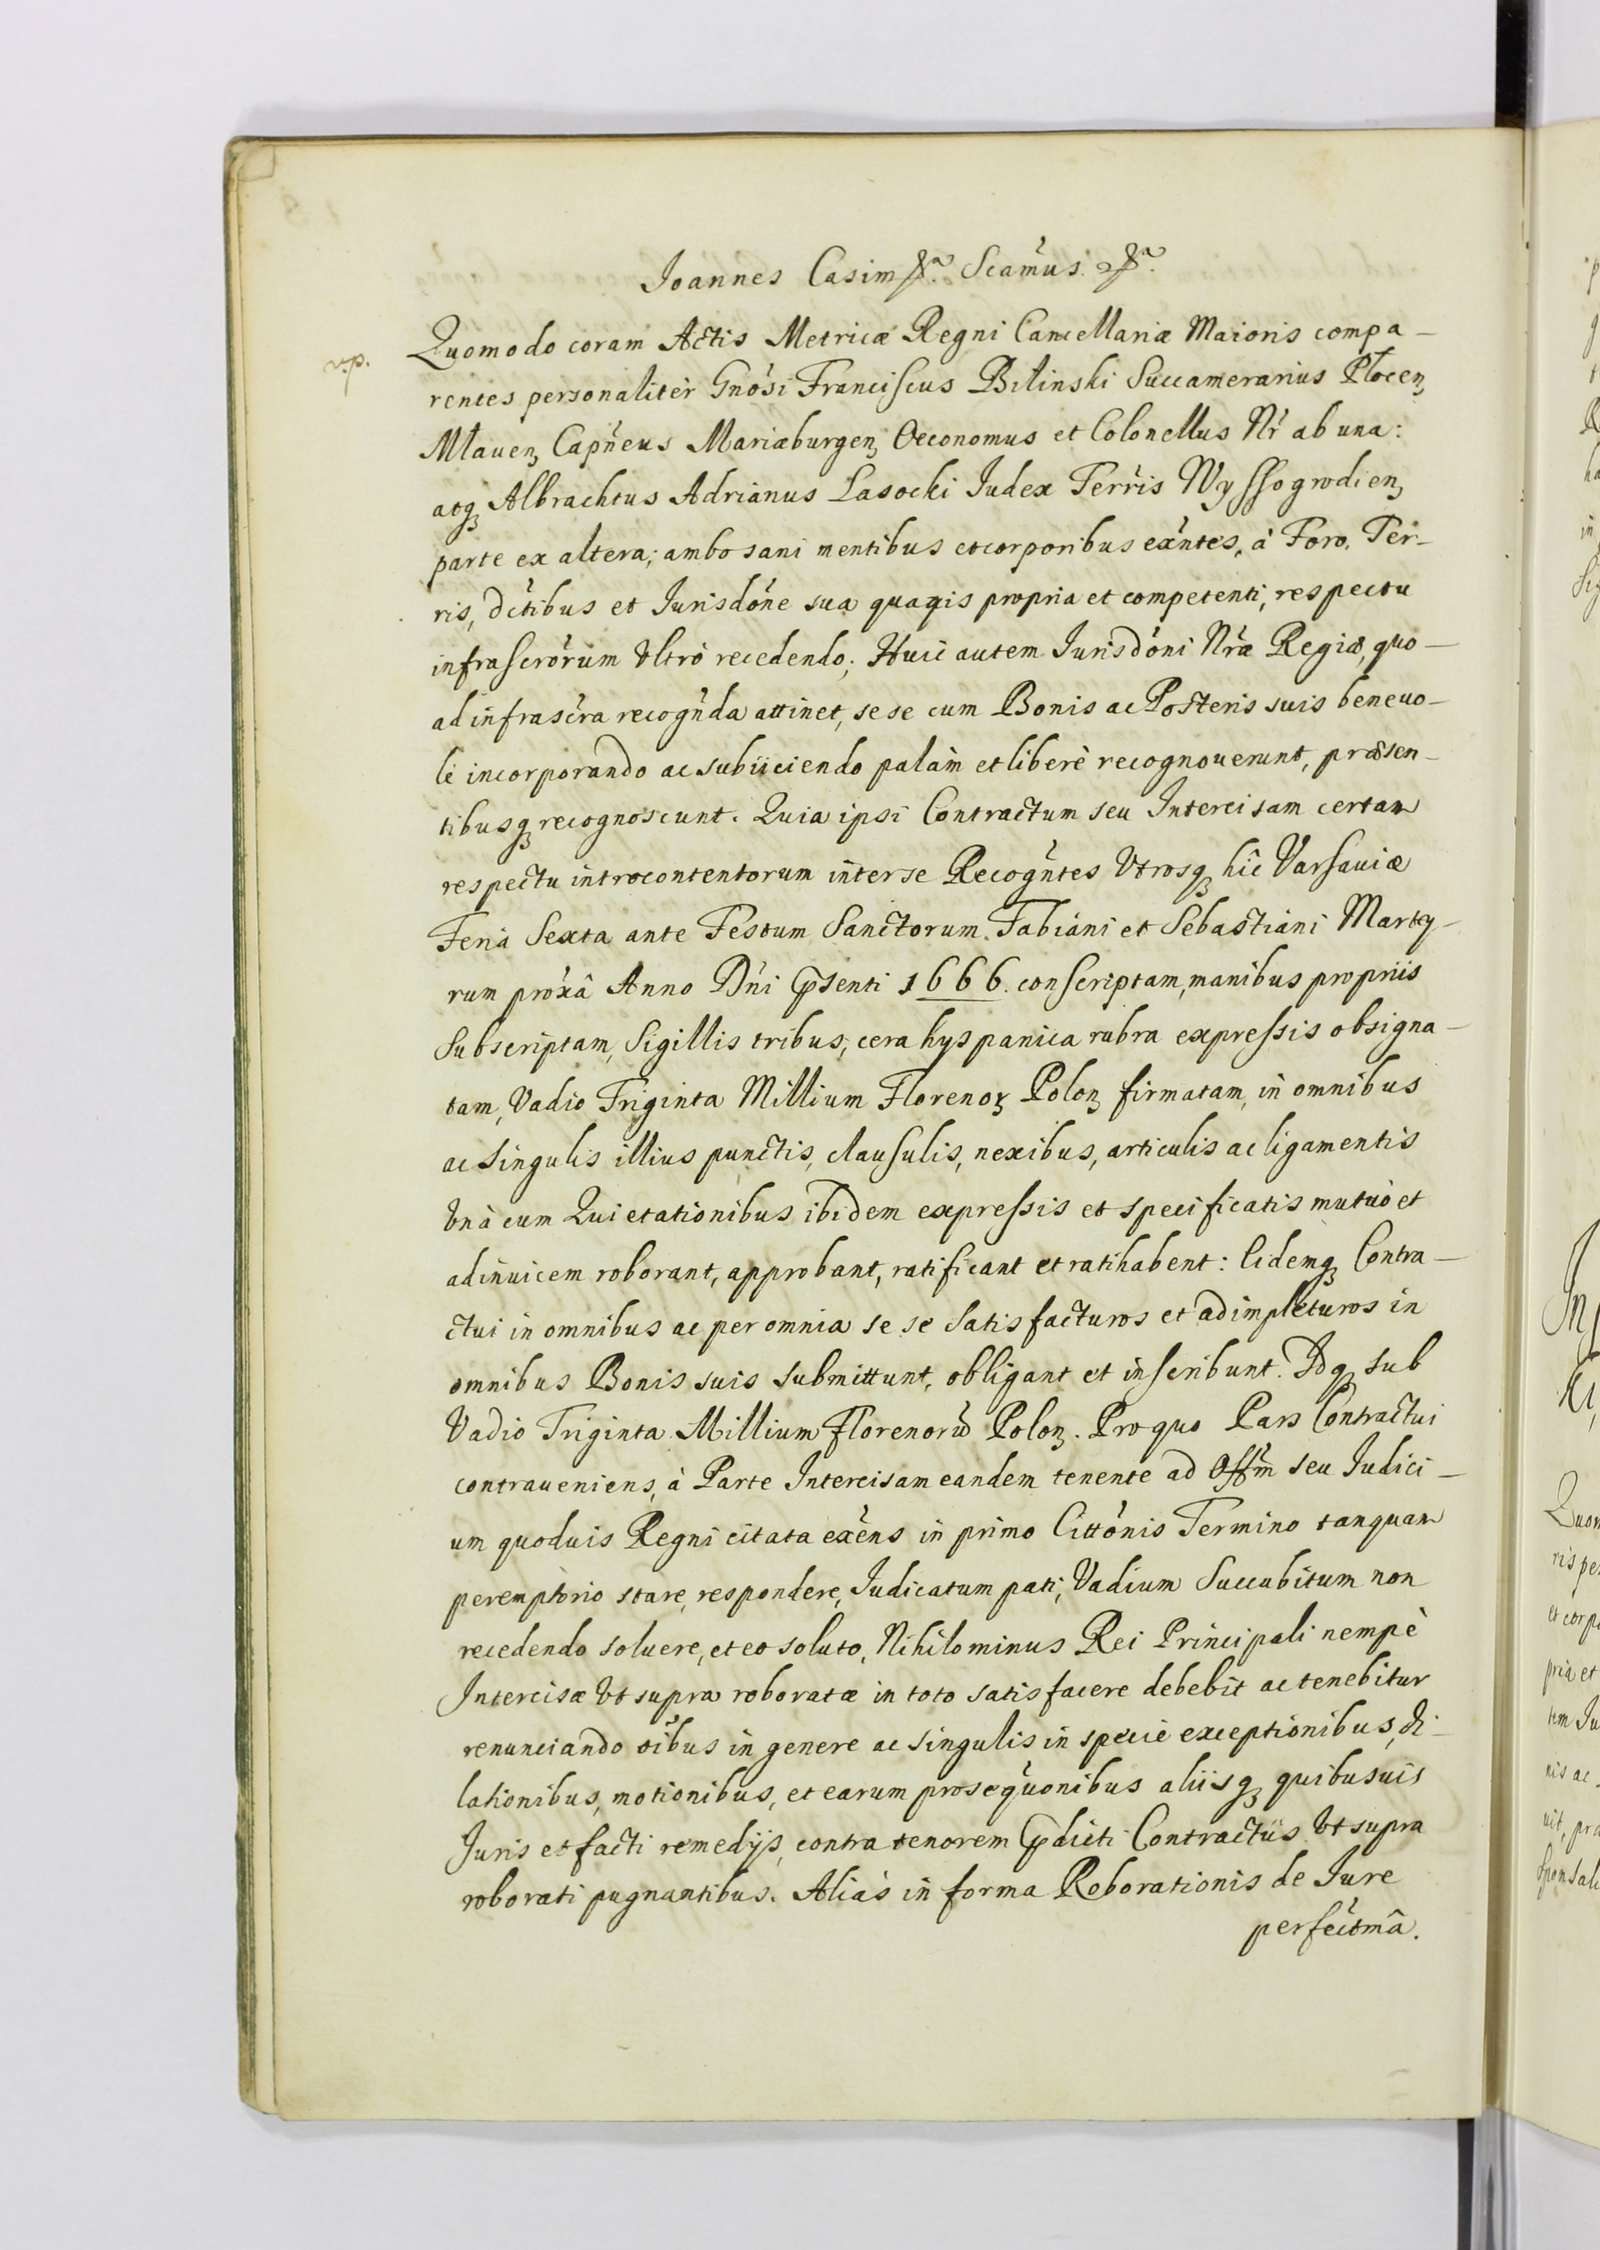 Joannes Casim &c. Scamus. &c.
v.p.
Quomodo coram Actis Metricæ Regni Cancellariæ Maioris compa—
rentes personalitèr Gnosi Franciscus Bilinski Succamerarius Plocen,
Mlauen, Capneus Mariæburgen, Oeconomus et Colonellus Nr ab una:
atq, Albrachtus Adrianus Lasocki Iudex Terris Wyssogrodien,
parte ex altera; ambo sani mentibus et corporibus exntes, à Foro, Ter-
ris, dctibus et Jurisdone sua quavis propria et competenti, respectu
infrascrorum Vltrò recedendo; Huic autem Jurisdoni Nræ Regiæ, quo—
ad infrascra recognda attinet, sese cum Bonis ac Posteris suis beneuo—
lè incorporando ac subijciendo palàm et liberè recognouerunt, præsen—
tibusq, recognoscunt. Quia ipsi Contractum seu Intercisam certam
respectu introcontentorum inter se Recogntes Vtrosq, hîc Varsauiæ
Feria Sexta ante Festum Sanctorum Fabiani et Sebastiani Marty—
rum proxâ Anno Dni psenti 1666. conscriptam, manibus proprijs
Subscriptam, Sigillis tribus, cera hyspanica rubra expressis obsigna—
tam, Vadio Triginta Millium Florenor, Polon, firmatam, in omnibus
ac singulis illius punctis, clausulis, nexibus, articulis ac ligamentis
Vnà cum Quietationibus ibidem expressis et specificatis mutuò et
adinuicem roborant, approbant, ratificant et ratihabent: Eidemq, Contra—
ctui in omnibus ac per omnia se se satisfacturos et adimpleturos in
omnibus Bonis suis submittunt, obligant et inscribunt. Idq, sub
Vadio Triginta Millium Florenorū Polon,. Pro quo Pars Contractui
contraueniens, à Parte Intercisam eandem tenente ad Offm seu Judici—
um quoduis Regni citata exens in primo Cittonis Termino tanquam
peremptorio stare, respondere, Iudicatum pati, Vadium Succubitum non
recedendo soluere, et eo soluto, Nihilominus Rei Principali nempè
Intercisæ Vt supra roboratæ in toto satisfacere debebit ac tenebitur
renunciando oibus in genere ac singulis in specie exceptionibus, di—
lationibus, motionibus, et earum prosequonibus alijsq, quibusuis
Juris et facti remedijs, contra tenorem pdicti Contractûs Vt supra
roborati pugnantibus. Aliàs in forma Roborationis de Jure
perfectmâ.